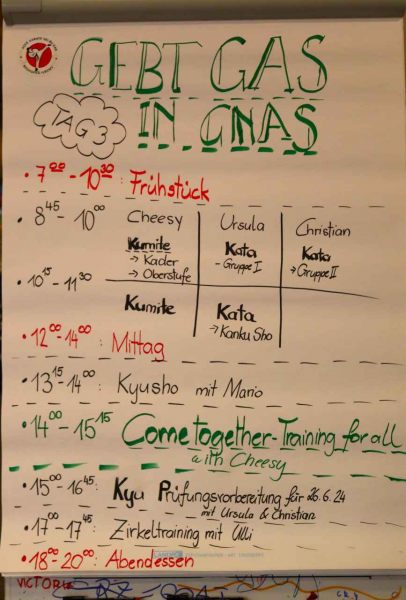 GEBT GAS
TAG 3
IN GNAS
• 7⁰⁰ - 10³⁰ : Frühstück
• 8⁴⁵ - 10⁰⁰
Cheesy
Kumite
→ Kader
→ Oberstufe
Ursula
Kata
- Gruppe I
Christian
Kata
→ Gruppe II
• 10¹⁵ - 11³⁰
Kumite
Kata
→ Kanku Sho
• 12⁰⁰ - 14⁰⁰ : Mittag
• 13¹⁵ - 14⁰⁰ : Kyusho mit Mario
• 14⁰⁰ - 15¹⁵ Come together - Training for all
with Cheesy
• 15⁰⁰ - 16⁴⁵ : Kyu Prüfungsvorbereitung für 26.6.24
mit Ursula & Christian
• 17⁰⁰ - 17⁴⁵ : Zirkeltraining mit Ulli
• 18⁰⁰ - 20⁰⁰ : Abendessen
VICTORIA